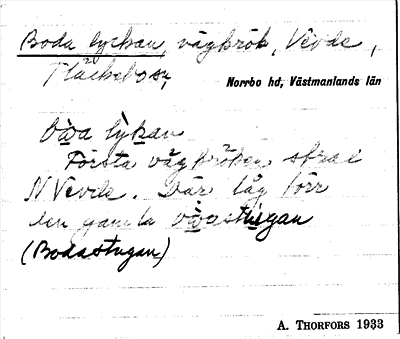 Boda lyckan, vägkrök, Vevde,
Fläckebo sn,
Norrbo hd, Västmanlands län
lỳkan
Första vägkröken strax
N Vevde. Där låg förr
den gamla
(Bodastugan)
A. THORFORS 1933